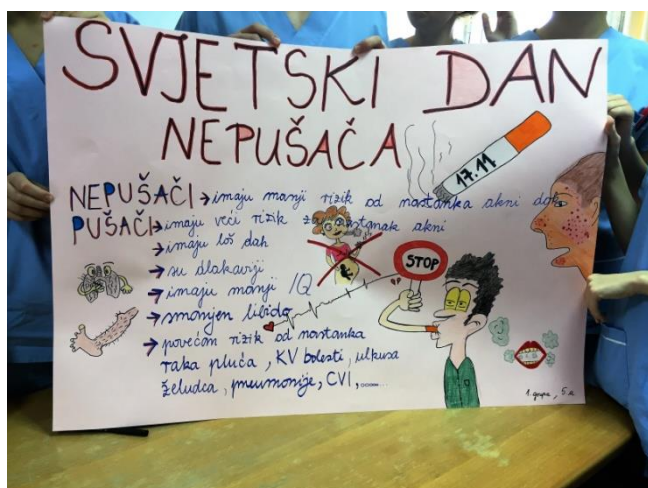 SVJETSKI DAN
NEPUŠAČA
17.11
NEPUŠAČI → imaju manji rizik od nastanka akni dok
PUŠAČI → imaju veći rizik za nastanak akni
→ imaju loš dah
STOP
→ su dlakavji
→ imaju manji IQ
→ smanjen libido
→ povećan rizik od nastanka
raka pluća, KV bolesti, ulkusa
želudca, pneumonije, CVI, .......
1. grupa, 5.e